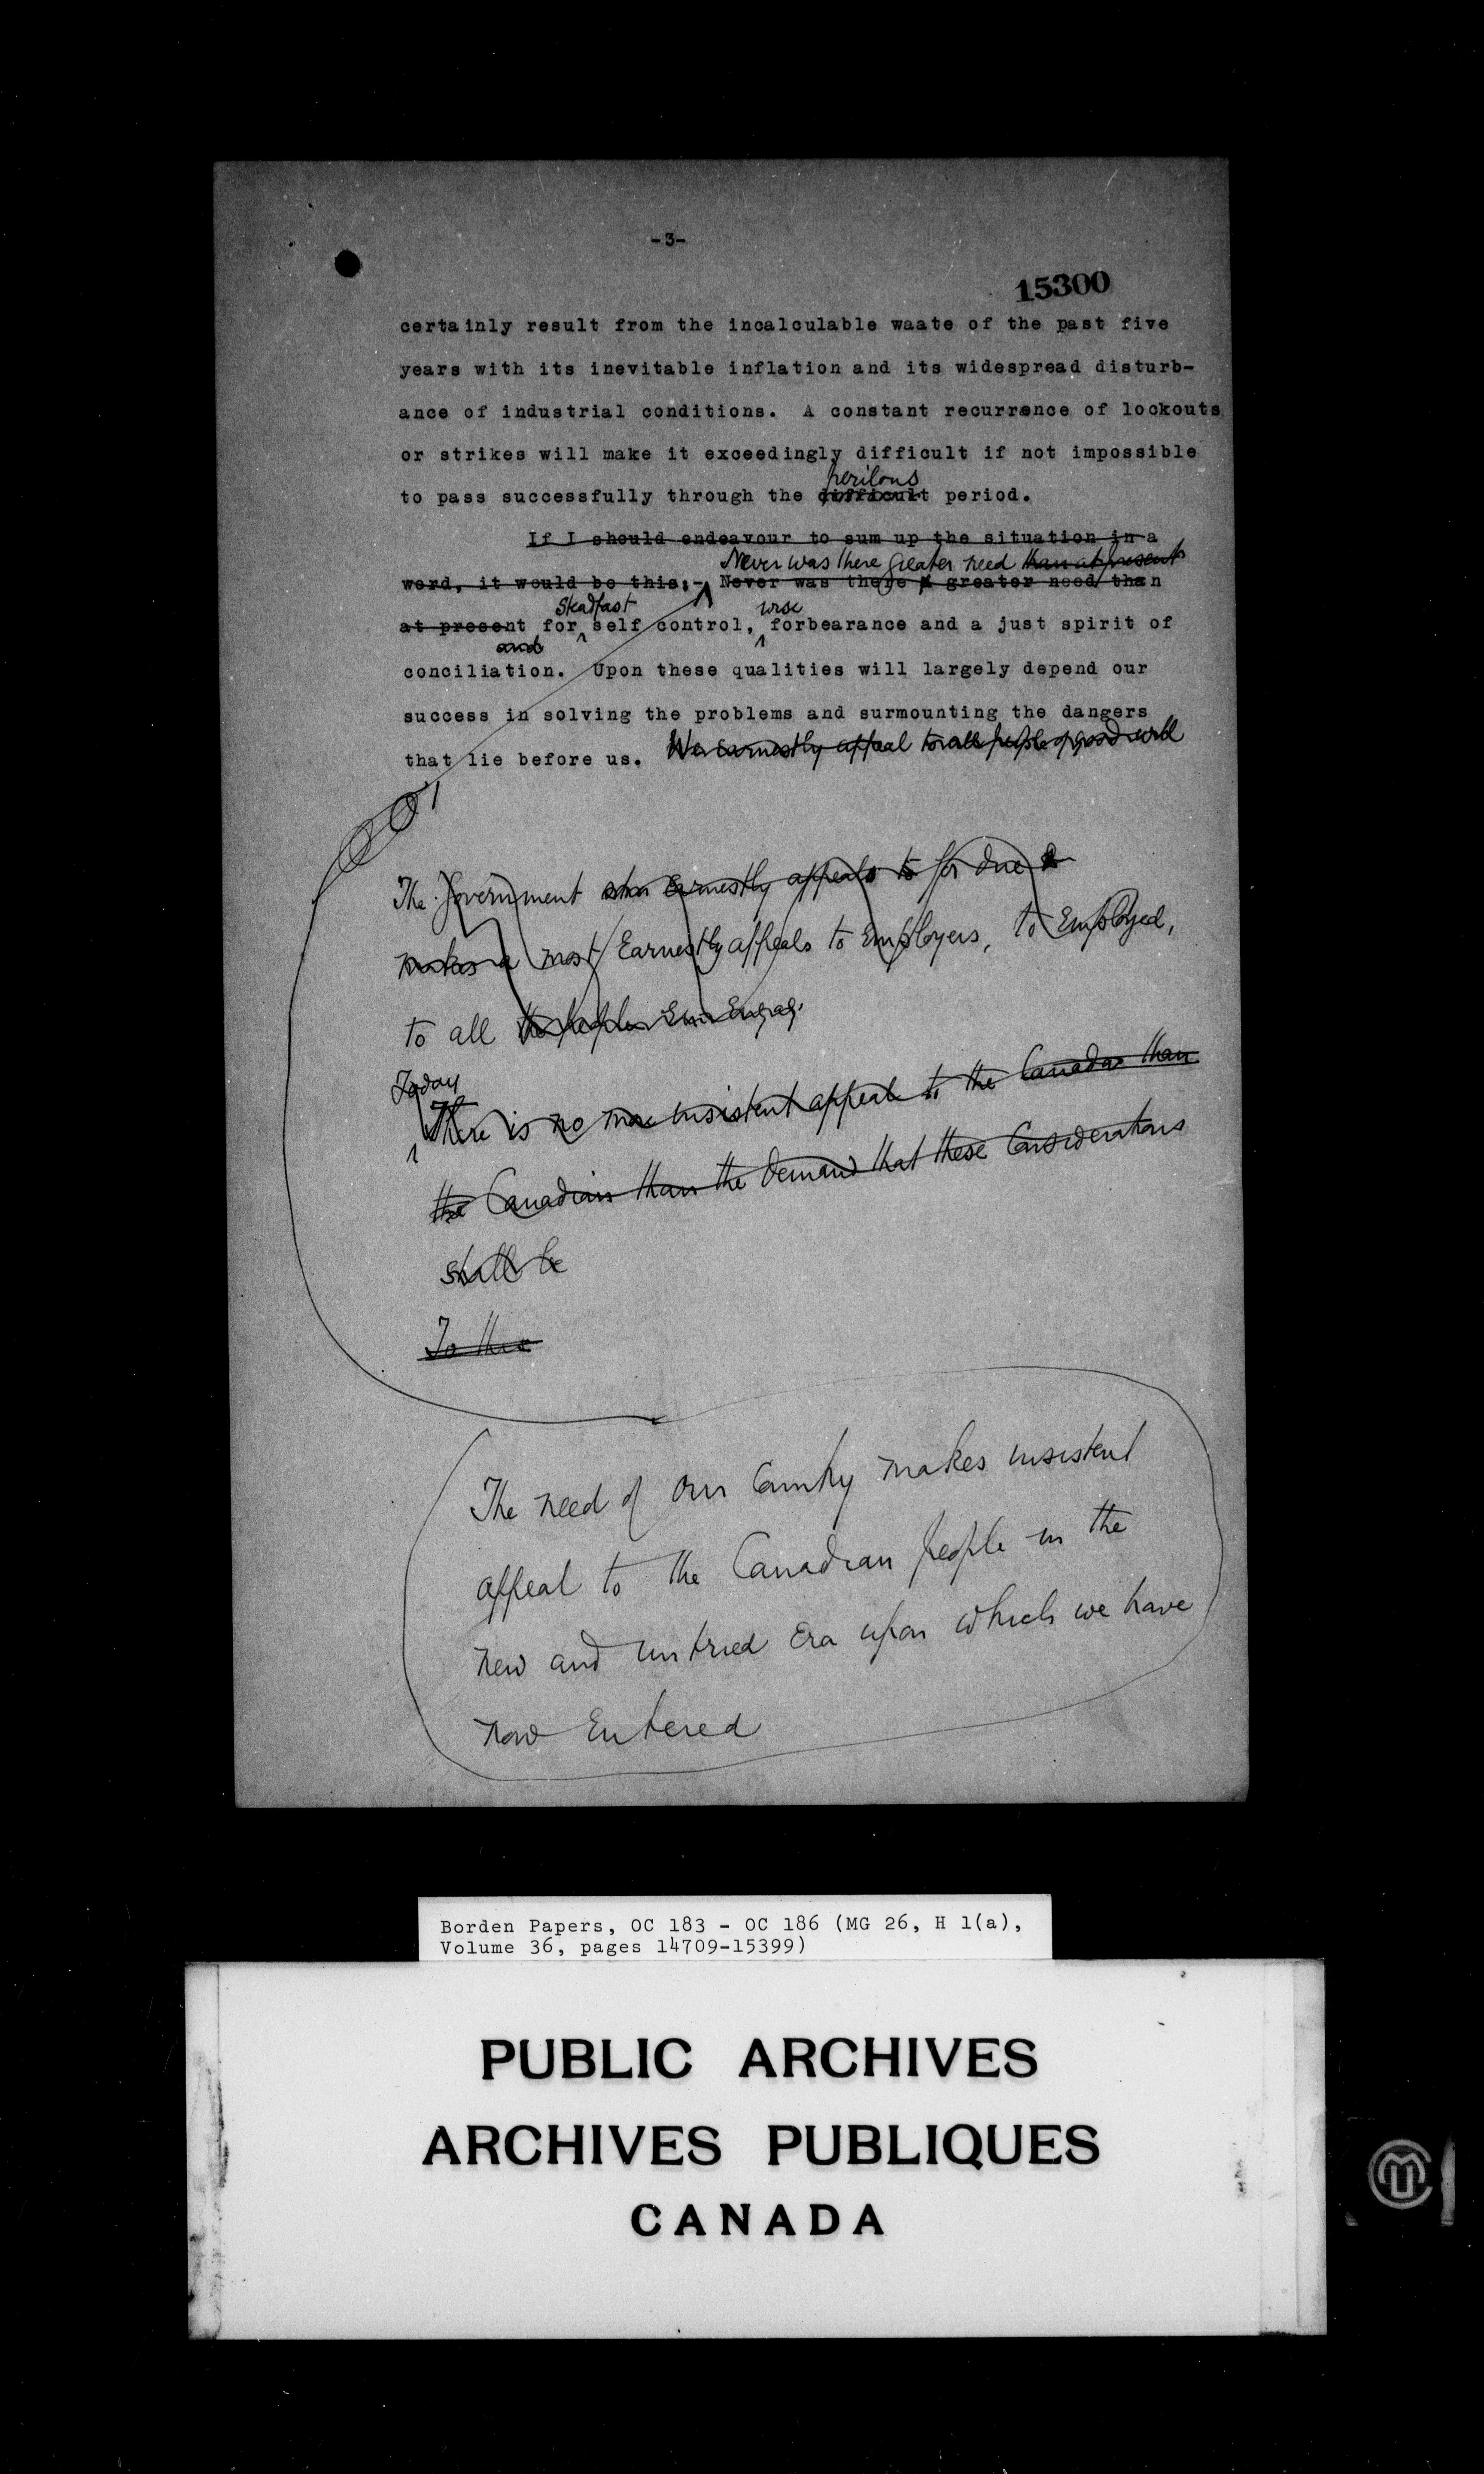 -3-
15300
certainly result from the incalculable waate of the past five
years with its inevitable inflation and its widespread disturb-
ance of industrial conditions. A constant recurrence of lockouts
or strikes will make it exceedingly difficult if not impossible
perilous
to pass successfully through the difficult period.
If I should endeavour to sum up the situation in a
Never was there greater need than at present
word, it would be this:- Never was there a greater need than
steadfast wise
at present for self control, forbearance and a just spirit of
and
conciliation. Upon these qualities will largely depend our
success in solving the problems and surmounting the dangers
that lie before us. We earnestly appeal to all people of good will
The Government earnestly appeals to for due
makes a most Earnestly appeals to Employers, to Employed,
to all the
Today
There is no more insistent appeal to the Canada than
the Canadian than the demand that these Considerations
shall be
To the
The need of our Country makes insistent
appeal to the Canadian people in the
new and untried Era upon which we have
now Entered
Borden Papers, OC 183 - OC 186 (MG 26, H 1(a),
Volume 36, pages 14709-15399)
PUBLIC ARCHIVES
ARCHIVES PUBLIQUES
CANADA